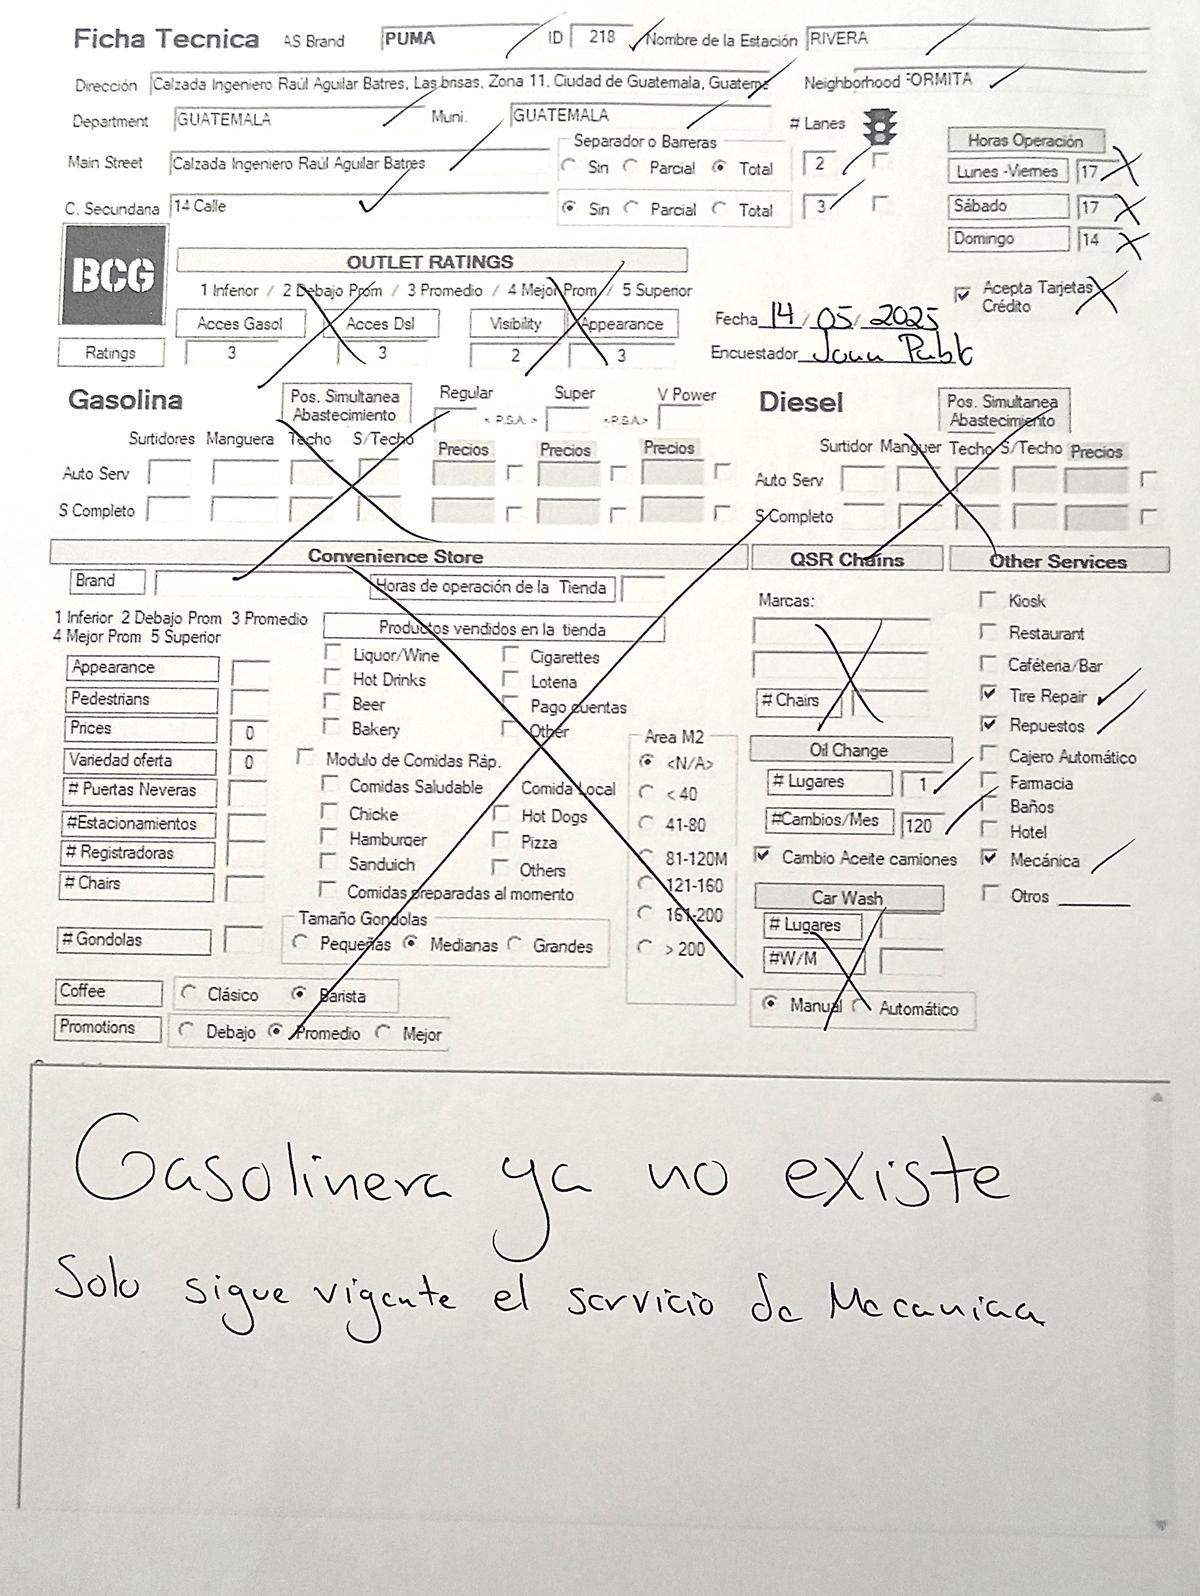 Ficha Tecnica AS Brand PUMA ID 218 Nombre de la Estación RIVERA
Dirección Calzada Ingeniero Raúl Aguilar Batres, Las brisas, Zona 11, Ciudad de Guatemala, Guateme Neighborhood FORMITA
Department GUATEMALA Muni. GUATEMALA # Lanes
Separador o Barreras
Horas Operación
Main Street Calzada Ingeniero Raúl Aguilar Batres Sin Parcial Total 2
Lunes -Viernes 17
C. Secundaria 14 Calle Sin Parcial Total 3
Sábado 17
Domingo 14
BCG
OUTLET RATINGS
1 Inferior / 2 Debajo Prom / 3 Promedio / 4 Mejor Prom / 5 Superior
Acepta Tarjetas
Crédito
Acces Gasol Acces Dsl Visibility Appearance
Fecha 14/05/2025
Ratings 3 3 2 3
Encuestador
Gasolina Pos. Simultanea
Abastecimiento
Regular Super V Power
<P.S.A.> <P.S.A>
Diesel Pos. Simultanea
Abastecimiento
Surtidores Manguera Techo S/Techo Precios Precios Precios
Surtidor Manguer Techo S/Techo Precios
Auto Serv
Auto Serv
S Completo
S Completo
Convenience Store
QSR Chains
Other Services
Brand Horas de operación de la Tienda
1 Inferior 2 Debajo Prom 3 Promedio
4 Mejor Prom 5 Superior
Productos vendidos en la tienda
Appearance
Pedestrians
Prices 0
Variedad oferta 0
# Puertas Neveras
#Estacionamientos
# Registradoras
# Chairs
# Gondolas
Liquor/Wine Cigarettes
Hot Drinks Loteria
Beer Pago cuentas
Bakery Other
Modulo de Comidas Ráp.
Comidas Saludable Comida Local
Chicke Hot Dogs
Hamburger Pizza
Sanduich Others
Comidas preparadas al momento
Tamaño Gondolas
Pequeñas Medianas Grandes
Area M2
<N/A>
< 40
41-80
81-120M
121-160
161-200
> 200
Coffee Clásico Barista
Promotions Debajo Promedio Mejor
Marcas:
# Chairs
Oil Change
# Lugares 1
#Cambios/Mes 120
Cambio Aceite camiones
Car Wash
# Lugares
#W/M
Manual Automático
Kiosk
Restaurant
Caféteria/Bar
Tire Repair
Repuestos
Cajero Automático
Farmacia
Baños
Hotel
Mecánica
Otros
Gasolinera ya no existe
Solo sigue vigente el servicio de Mecanica